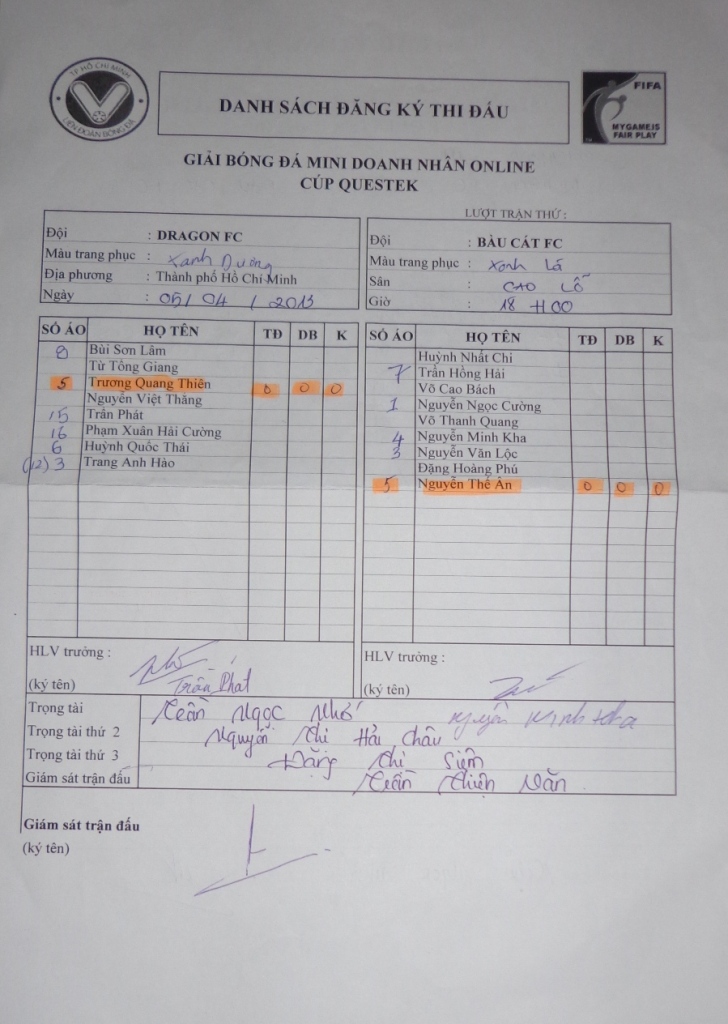 TP HỒ CHÍ MINH
LIÊN ĐOÀN BÓNG ĐÁ
DANH SÁCH ĐĂNG KÝ THI ĐẤU
FIFA
MY GAME IS
FAIR PLAY
GIẢI BÓNG ĐÁ MINI DOANH NHÂN ONLINE
CÚP QUESTEK
LƯỢT TRẬN THỨ :
Đội : DRAGON FC
Màu trang phục : Xanh Dương
Địa phương : Thành phố Hồ Chí Minh
Ngày : 05/ 04 / 2013
Đội : BÀU CÁT FC
Màu trang phục : Xanh Lá
Sân : CAO LỖ
Giờ : 18 H00
SỐ ÁO HỌ TÊN TĐ DB K
8 Bùi Sơn Lâm
Từ Tông Giang
5 Trương Quang Thiên 0 0 0
Nguyễn Việt Thăng
15 Trần Phát
16 Phạm Xuân Hải Cường
6 Huỳnh Quốc Thái
(12) 3 Trang Anh Hào
SỐ ÁO HỌ TÊN TĐ DB K
Huỳnh Nhất Chi
7 Trần Hồng Hải
Võ Cao Bách
1 Nguyễn Ngọc Cường
Võ Thanh Quang
4 Nguyễn Minh Kha
3 Nguyễn Văn Lộc
Đặng Hoàng Phú
5 Nguyễn Thế Ân 0 0 0
HLV trưởng :
(ký tên)
Trần Phát
HLV trưởng :
(ký tên)
Nguyễn Minh Kha
Trọng tài Trần Ngọc Nhớ
Trọng tài thứ 2 Nguyễn Chi Hải Châu
Trọng tài thứ 3 Đặng Chi
Giám sát trận đấu Trần Thiện Văn
Giám sát trận đấu
(ký tên)